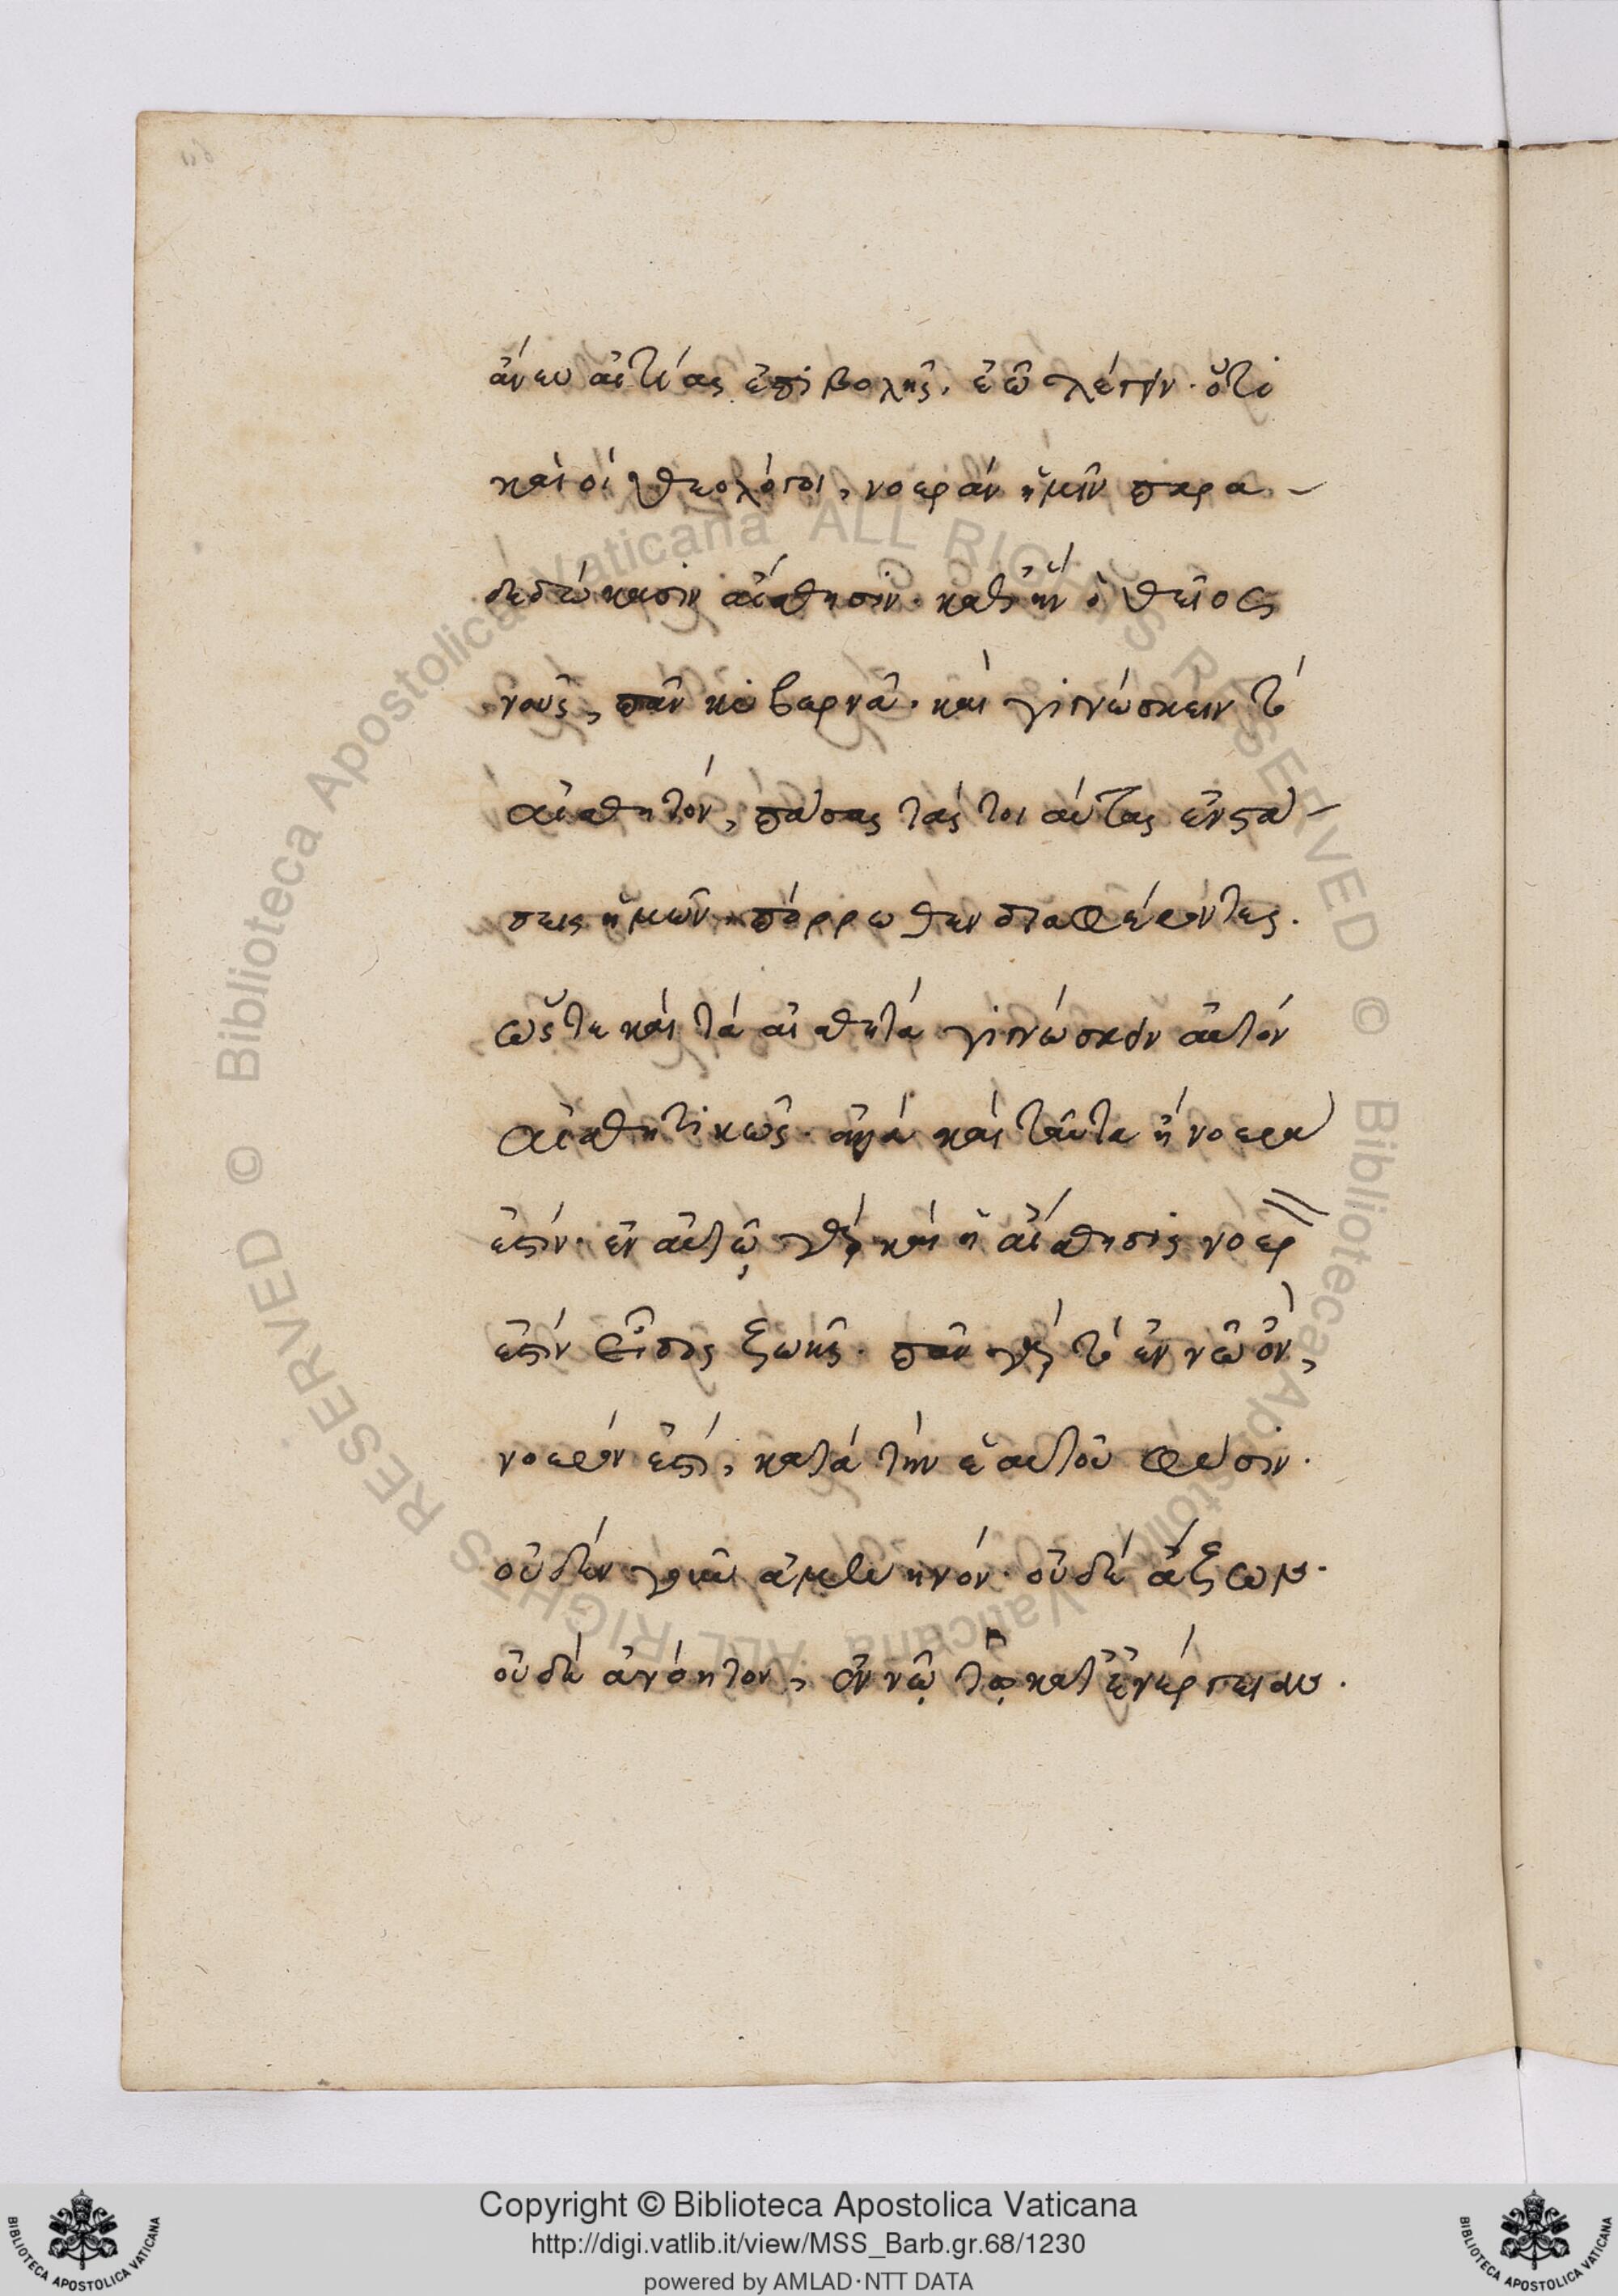 ἄνευ αἰτίας ἐπιβολῆς. ἐῶ λέγειν. ὅτι
καὶ οἱ θεολόγοι, νοερὰν ἡμῖν παρα-
δεδώκασιν αἴσθησιν. καθ' ἣν ὁ θεῖος
νοῦς, πᾶν κυβερνᾶ. καὶ γιγνώσκειν τὸ
αἰσθητὸν, πάσας τὰς τοιαύτας ἐνστά-
σεις ἡμῶν πόρρωθεν διαφέροντες.
ὥστε καὶ τὰ αἰσθητὰ γιγνώσκειν αὐτὸν
αἰσθητικῶς. ἀλλὰ καὶ ταῦτα ἡ νοερά
ἐστιν. ἐν αὐτῷ γὰρ καὶ ἡ αἴσθησις νοερ
ἐστὶν εἶδος ζωῆς. πᾶν γὰρ τὸ ἐν νῷ ὄν,
νοερόν ἐστι, κατὰ τὴν ἑαυτοῦ φύσιν.
οὐδὲν γὰρ ἀμενηνόν. οὐδὲ ἄζων.
οὐδὲ ἀνόητον, ἐν νῷ τῷ κατ' ἐνέργειαν.
Copyright © Biblioteca Apostolica Vaticana
http://digi.vatlib.it/view/MSS_Barb.gr.68/1230
powered by AMLAD·NTT DATA